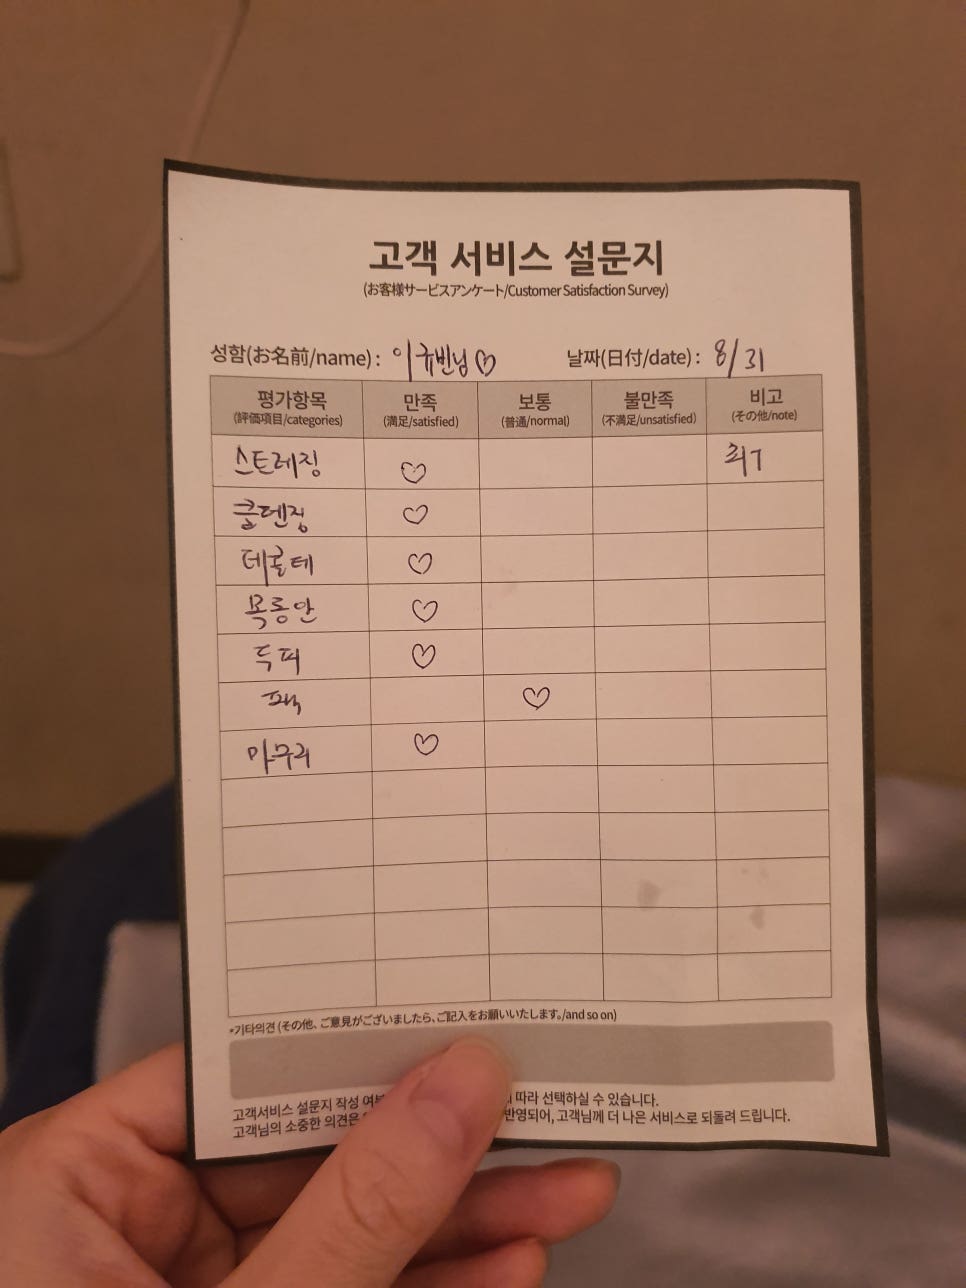 고객 서비스 설문지
(お客様サービスアンケート/Customer Satisfaction Survey)
성함(お名前/name) : 이규빈님♡ 날짜(日付/date) : 8/31
평가항목 만족 보통 불만족 비고
(評価項目/categories) (満足/satisfied) (普通/normal) (不満足/unsatisfied) (その他/note)
스트레징 ♡
클렌징 ♡
데콜테 ♡
목등안 ♡
두피 ♡
팩 ♡
마무리 ♡
*기타의견 (その他、ご意見がございましたら、ご記入をお願いいたします。/and so on)
고객서비스 설문지 작성 따라 선택하실 수 있습니다.
고객님의 소중한 의견은 반영되어, 고객님께 더 나은 서비스로 되돌려 드립니다.